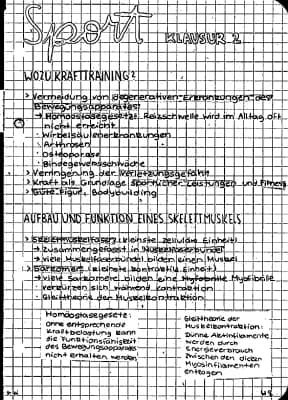 Sport
KLAUSUR 2
WOZU KRAFTTRAINING?
> Vermeidung von degenerativen Erkrankungen des
Bewegungsapparates
→ Homöostasegesetz: Reizschwelle wird im Alltag oft
nicht erreicht
· Wirbelsäulenerkrankungen
· Arthrosen
· Osteoporose
· Bindegewebsschwäche
> Verringerung der Verletzungsgefahr
> Kraft als Grundlage sportlicher Leistungen und Fitness
> Gute Figur, Bodybuilding
AUFBAU UND FUNKTION EINES SKELETTMUSKELS
> Skelettmuskelfaser (kleinste zelluläre Einheit)
→ zusammengefasst in Muskelfaserbündel
→ viele Muskelfaserbündel bilden einen Muskel
> Sarkomere (kleinste kontraktile Einheit)
→ viele Sarkomere bilden eine Myofibrille
· verkürzen sich während Kontraktion
· Gleittheorie der Muskelkontraktion
Homöostasegesetz:
Ohne entsprechende
Kraftbelastung kann
die Funktionsfähigkeit
des Bewegungsapparates
nicht erhalten werden
Gleittheorie der
Muskelkontraktion:
Dünne Aktinfilamente
werden durch
Energieverbrauch
zwischen den dicken
Myosinfilamenten